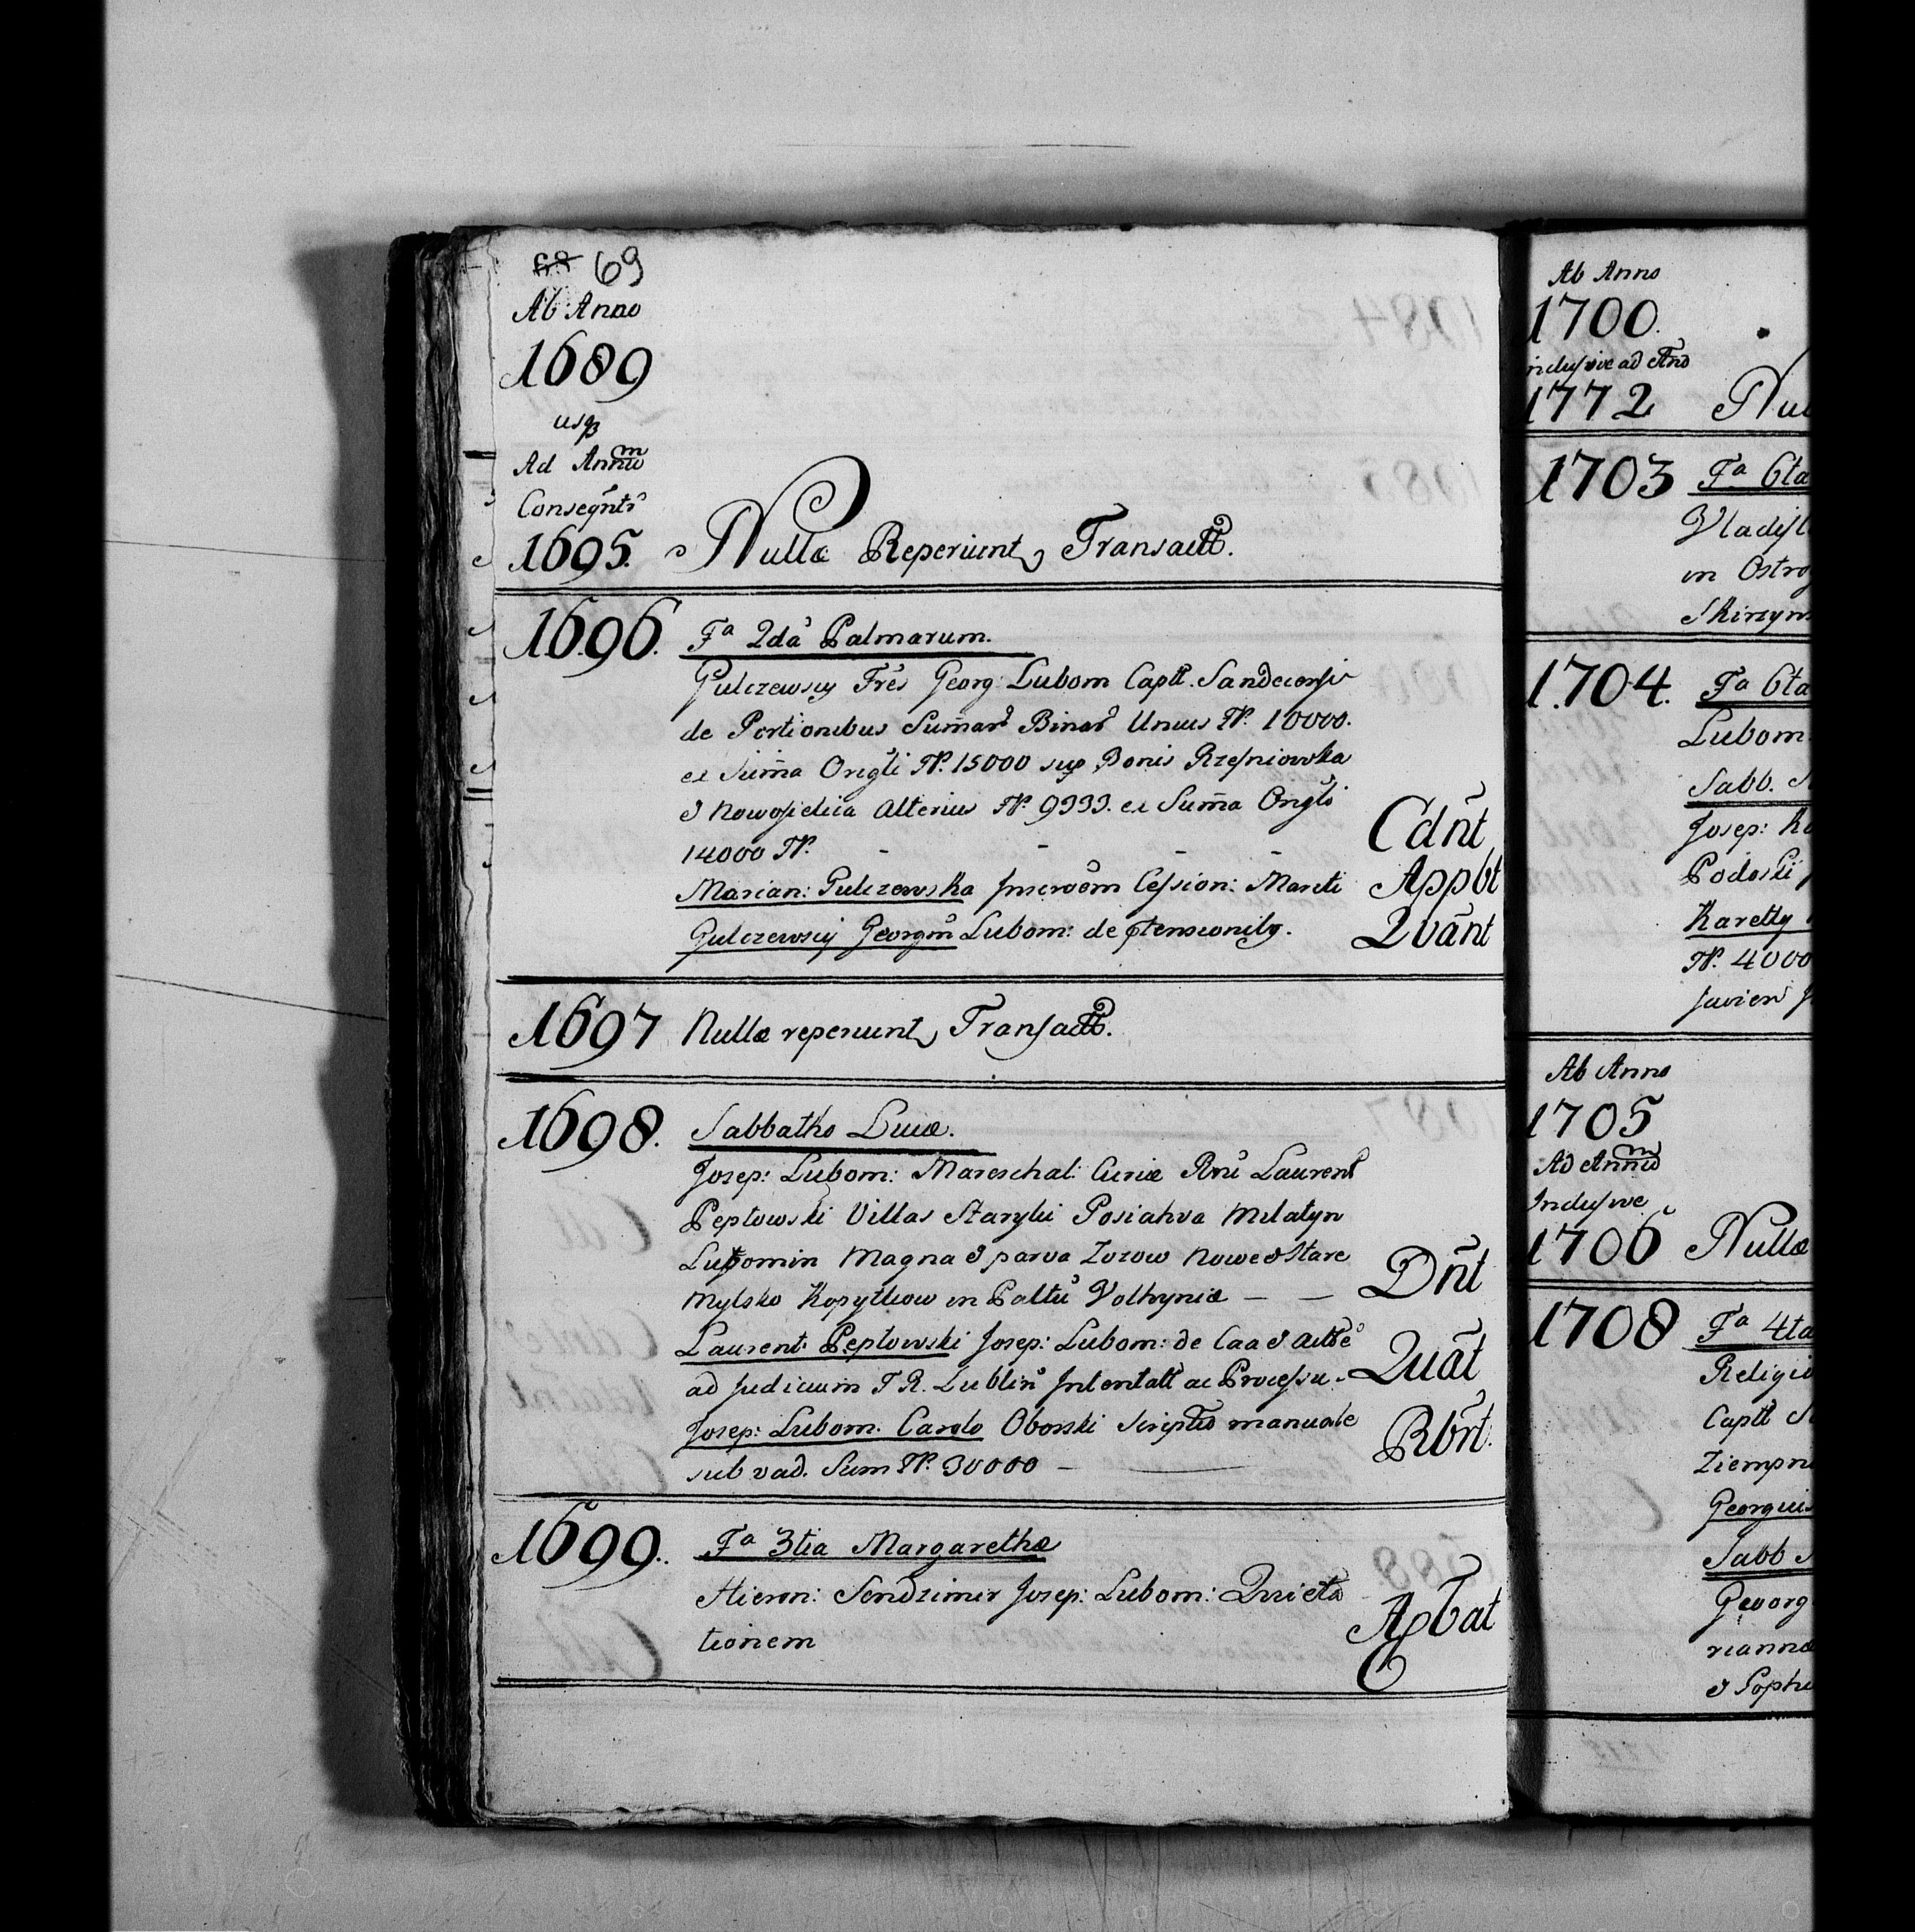 68 69
Ab Anno
1689
usq
Ad Annũ
Conseqñts
1695. Nullæ Reperiunt Transact.
1696. Fa 2da Palmarum.
Gulczewscy Fres Georg: Lubom Captt. Sandecensi
de Portionibus Sum̃ar Binar Unius Fl. 10000.
ex Sum̃a Origli Fl. 15000 sup Bonis Rzesniowka
& Nowosielica Alterius Fl. 9333. ex Sum̃a Origli
14000 Fl. - - - - Cdñt
Marian: Gulczewska Cession: Mariti Appbt
Gulczewscy Georgiũ Lubom: de ptensionib. Qvãnt
1697 Nullæ reperiunt Transact.
1698. Sabbatho Luciæ.
Josep: Lubom: Mareschal: Curiæ Rni Laurent
Peplowski Villas Staryki Posiahva Milatyn
Lubomin Magna & parva Zozow Nowe & Stare
Mylsko Kopytkow in Paltu Volhyniæ — — Dñt
Laurent: Peplowski Josep: Lubom: de Caa & actte
ad Judicium T. R. Lublin Intentatt ac Processu - Quãt
Josep: Lubom. Carolo Oborski Scriptũ manuale
sub vad. Sum Fl. 30000 — Rbrt.
1699. Fa 3tia Margarethæ
Hieron: Sendzimir Josep: Lubom: Quieta
tionem Apbat
Ab Anno
1700.
inclusive ad Anno
1772 Nul
1703 Fa 6ta
Vladisl
in Ostro
Skirzyn
1704. Fa 6ta
Lubom.
Sabb.
Josep: Ko
Podoski
Karetty
Fl. 4000
Ab Anno
1705
Ad Annũ
Inclusive
1706 Nullæ
1708 Fa 4ta
Religio
Captt
Ziempni
Georgius
Sabb
Georg
rianna
& Sophi